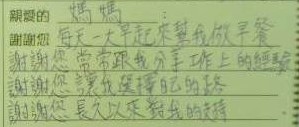 親愛的 媽媽：
謝謝您 每天一大早起來幫我做早餐
謝謝您常常跟我分享工作上的經驗
謝謝您讓我選擇自己的路
謝謝您長久以來對我的支持